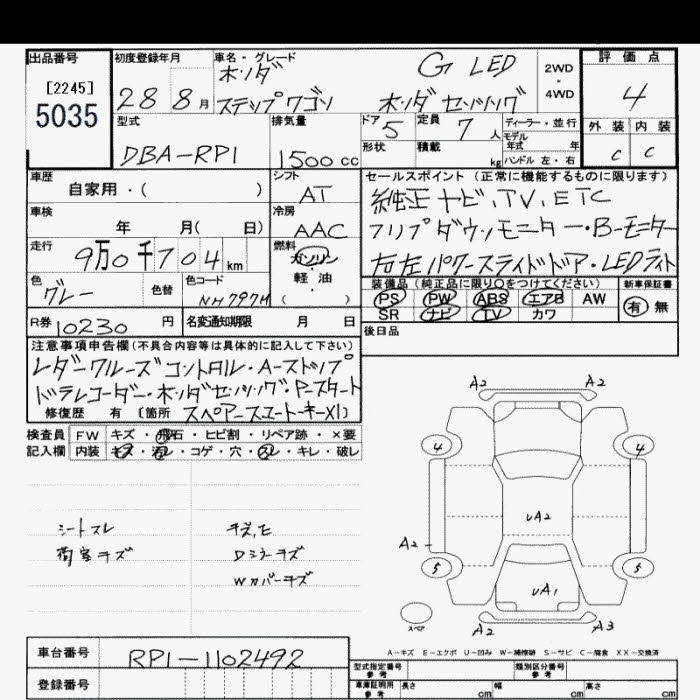 出品番号
[2245]
5035
初度登録年月
28 8月
車名・グレード
ホンダ G LED
ステップワゴン ホンダセンシング
2WD
・
4WD
評価点
4
外装 内装
C C
型式
DBA-RP1
排気量
1500 cc
ドア 5
形状
定員 7 人
積載 kg
ディーラー・並行
モデル
年式 年
ハンドル 左・右
車歴
自家用・( )
シフト
AT
車検
年 月( 日)
冷房
AAC
走行
9万0千704km
燃料
ガソリン
・
軽油
( )
色
グレー
色替
色コード
NH797M
R券 10230 円
名変通知期限 月 日
セールスポイント (正常に機能するものに限ります)
純正ナビ、TV、ETC
フリップダウンモニター・B-モニター
右左パワースライドドア・LEDライト
装備品 (純正品に限り○をつけてください)
PS PW ABS エアB AW
SR ナビ TV カワ
新車保証書
有 無
後日品
注意事項申告欄(不具合内容等は具体的に記入して下さい)
レーダークルーズコントロル・A-ストップ
ドラレコーダー・ホンダセンシング・P-スタート
修復歴 有 〔箇所 スペアースマートキーX1〕
検査員 FW キズ・飛石・ヒビ割・リペア跡・×要
記入欄 内装 キズ・汚レ・コゲ・穴・スレ・キレ・破レ
シートスレ
荷室キズ
Dミラーキズ
Wカバーキズ
A2 A2
4 4
UA2
A2
5 5
UA1
スペア
A2 A3
A-キズ E-エクボ U-凹み W-補修跡 S-サビ C-腐食 XX-交換済
車台番号
RP1-1102492
登録番号
型式指定番号
参考
類別区分番号
参考
車庫証明用
参考
長さ cm 幅 cm 高さ cm